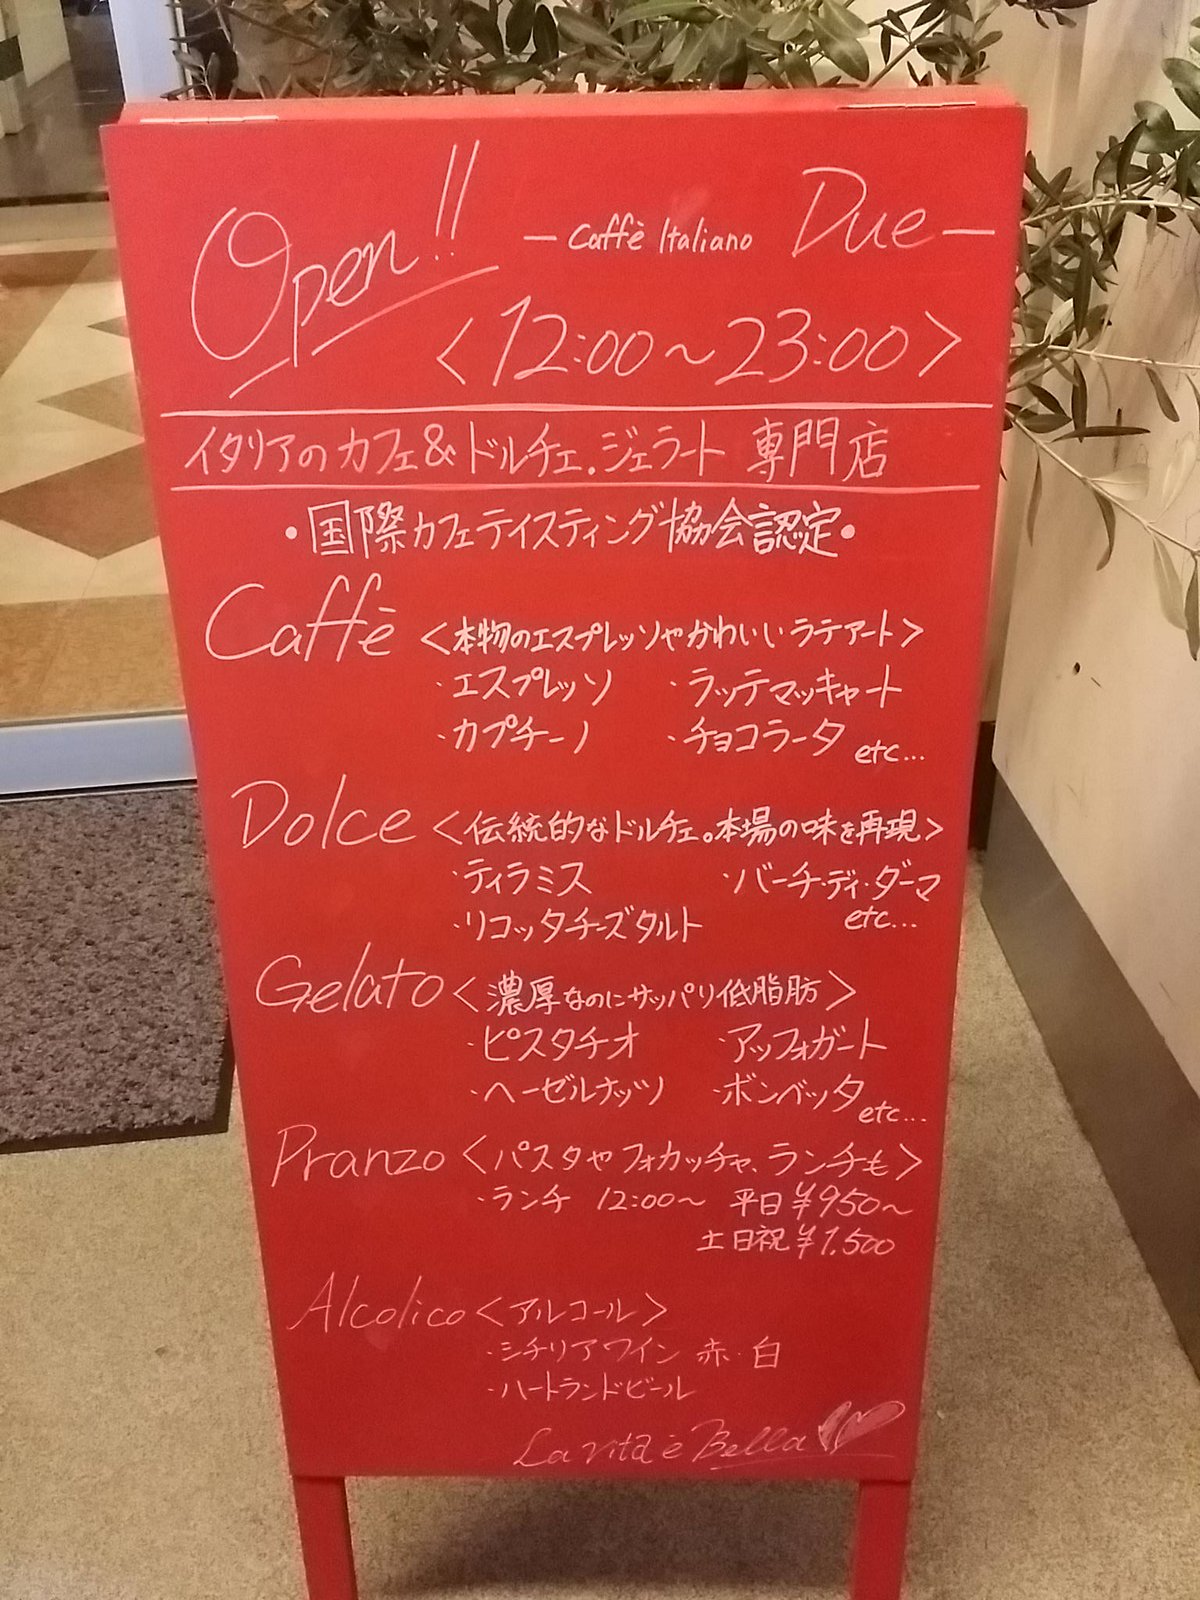 Open!! ーCaffè Italiano Dueー
<12:00〜23:00>
イタリアのカフェ&ドルチェ.ジェラート 専門店
・国際カフェテイスティング協会認定・
Caffè <本物のエスプレッソやかわいいラテアート>
・エスプレッソ ・ラッテマッキャート
・カプチーノ ・チョコラータ etc...
Dolce <伝統的なドルチェ。本場の味を再現>
・ティラミス ・バーチ・ディ・ダーマ
・リコッタチーズタルト etc...
Gelato <濃厚なのにサッパリ低脂肪>
・ピスタチオ ・アッフォガート
・ヘーゼルナッツ ・ボンベッタ etc...
Pranzo <パスタやフォカッチャ、ランチも>
・ランチ 12:00〜 平日¥950〜
土日祝¥1.500
Alcolico <アルコール>
・シチリアワイン 赤・白
・ハートランドビール
La vita è Bella